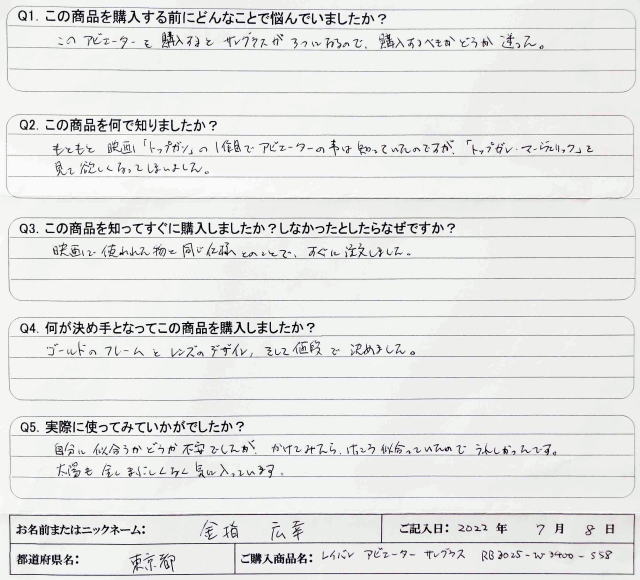 Q1. この商品を購入する前にどんなことで悩んでいましたか？
このアビエーターを購入するとサングラスが3つになるので、購入すべきかどうか迷った。
Q2. この商品を何で知りましたか？
もともと映画「トップガン」の1作目でアビエーターの事は知っていたのですが、「トップガン・マーヴェリック」を
見て欲しくなってしまいました。
Q3. この商品を知ってすぐに購入しましたか？しなかったとしたらなぜですか？
映画で使われた物と同じ仕様とのことで、すぐに注文しました。
Q4. 何が決め手となってこの商品を購入しましたか？
ゴールドのフレームとレンズのデザイン、そして値段で決めました。
Q5. 実際に使ってみていかがでしたか？
自分に似合うかどうか不安でしたが、かけてみたら、けっこう似合っていたのでうれしかったです。
太陽も全しまぶしくなく気に入っています。
お名前またはニックネーム： 金指 広幸
ご記入日：2022 年 7 月 8 日
都道府県名： 東京都
ご購入商品名：レイバン アビエーター サングラス RB3025-W3400-58